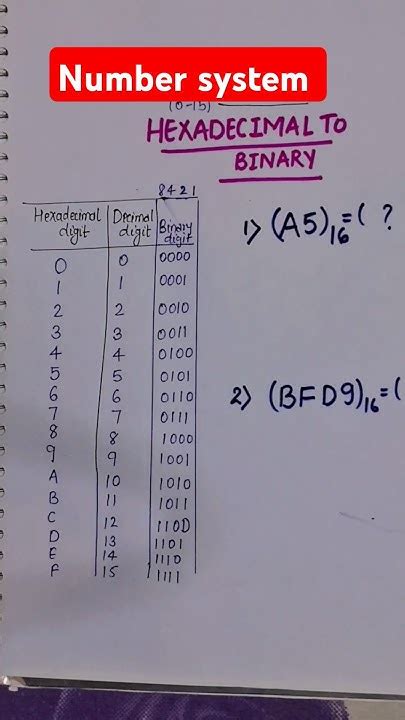 Number system
(0-15)
HEXADECIMAL TO
BINARY
8421
Hexadecimal digit Decimal digit Binary digit
0 0 0000
1 1 0001
2 2 0010
3 3 0011
4 4 0100
5 5 0101
6 6 0110
7 7 0111
8 8 1000
9 9 1001
A 10 1010
B 11 1011
C 12 1100
D 13 1101
E 14 1110
F 15 1111
1) (A5)₁₆=( ?
2) (BFD9)₁₆=(